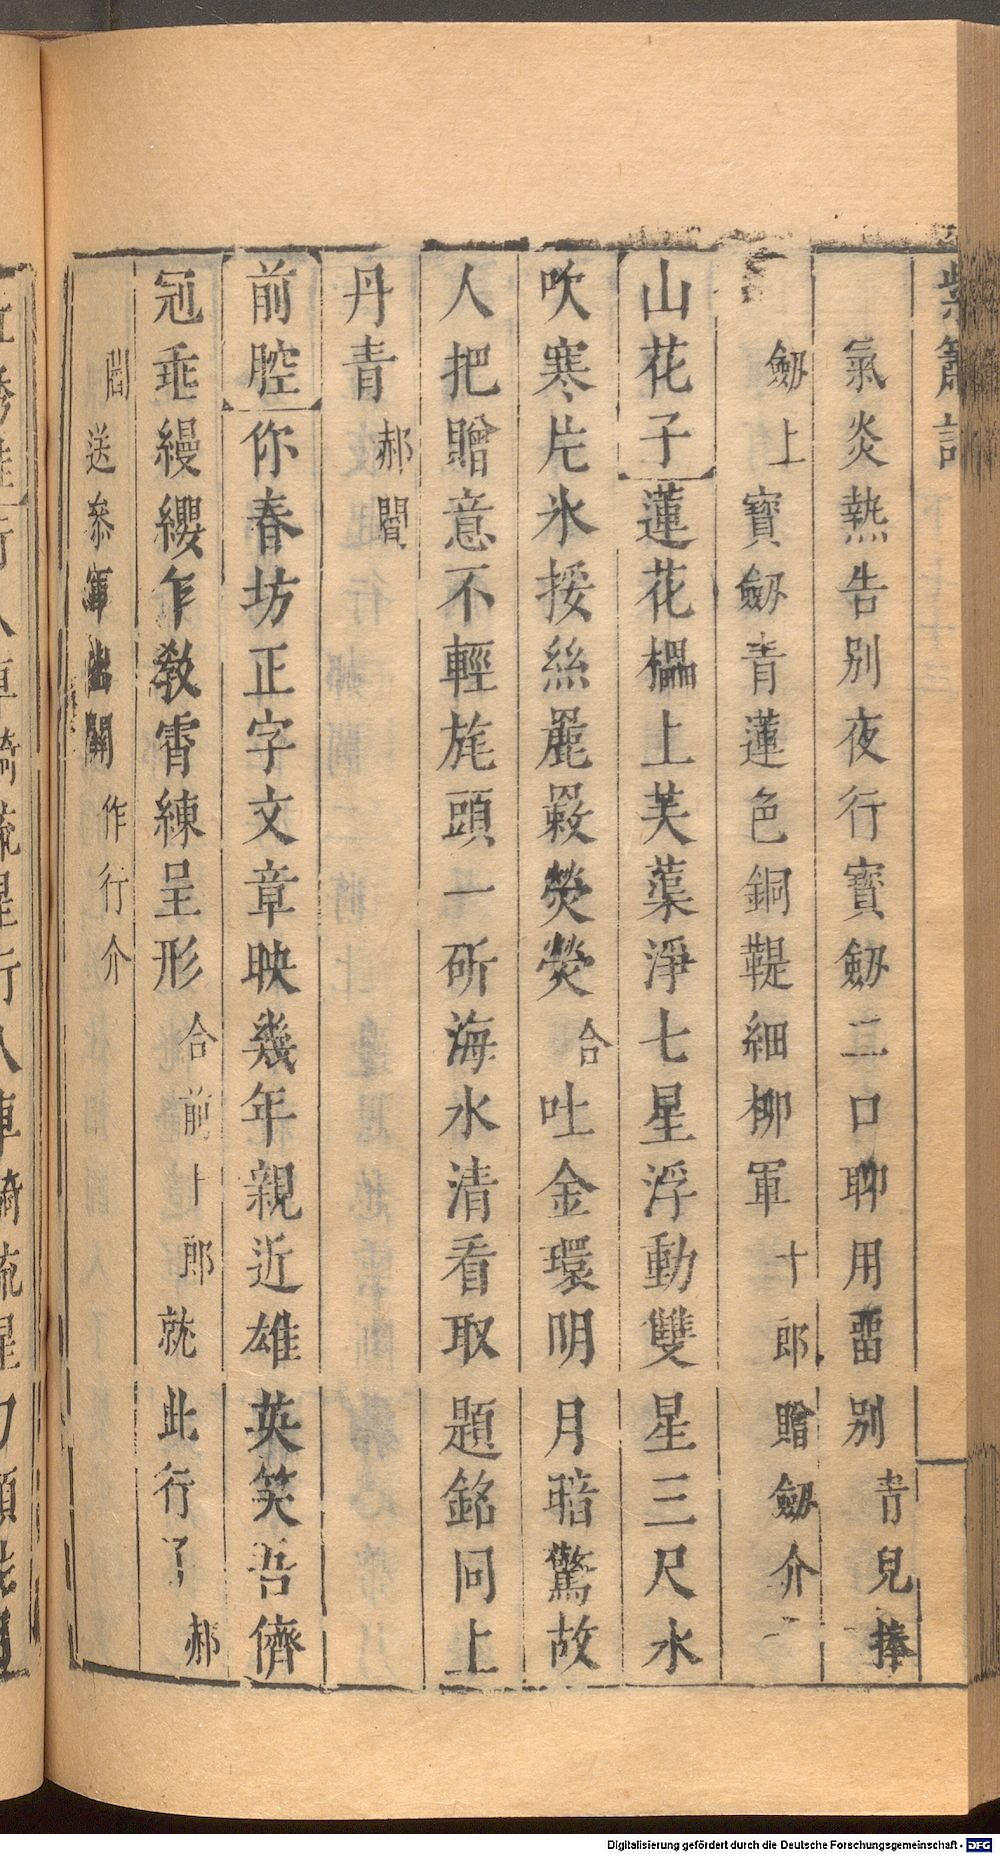 紫簫記
氣炎熱告別夜行寶劒二口聊用畱別青兒捧
劒上寶劒青蓮色銅鞮細柳軍十郎贈劒介
山花子蓮花櫑上芙蕖淨七星浮動雙星三尺水
吹寒片氷挼絲麗㲉熒熒合吐金環陰月暗驚故
人把贈意不輕旄頭一斫海水清看取題銘同上
丹青郝閻
前腔你春坊正字文章映幾年親近雄英笑吾儕
冠垂縵纓乍教霄練呈形合前十郎就此行了郝
閻送叅軍出關作行介
Digitalisierung gefördert durch die Deutsche Forschungsgemeinschaft - DFG